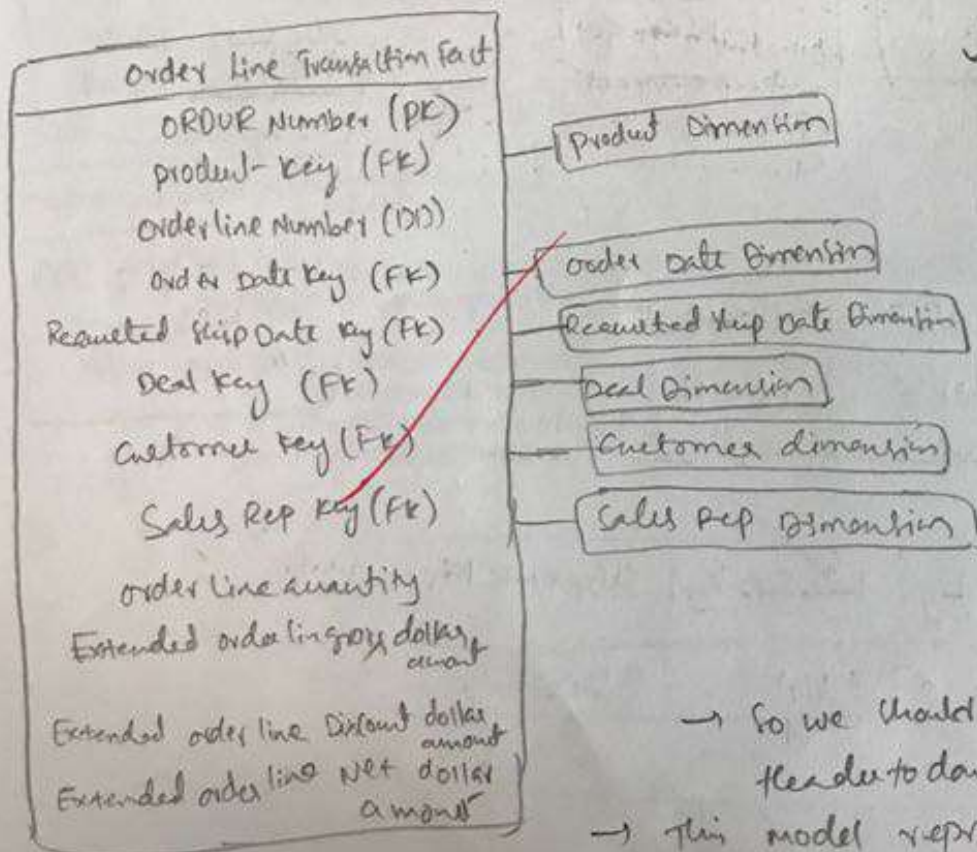 Order Line Transaction Fact
ORDUR Number (PK)
product-key (FK)
Orderline Number (DD)
order Date key (FK)
Requeted ship Date key (FK)
Deal key (FK)
Customer key (FK)
Sales Rep key (FK)
order Line quantity
Extended order lin gross dollar
amount
Extended order line Discount dollar
amount
Extended order line Net dollar
amount
Product Dimention
order Date Dimension
Requeted ship Date Dimension
Deal Dimension
Customer dimension
Sales Rep Dimension
→ So we should
Header to da
→ This model repr